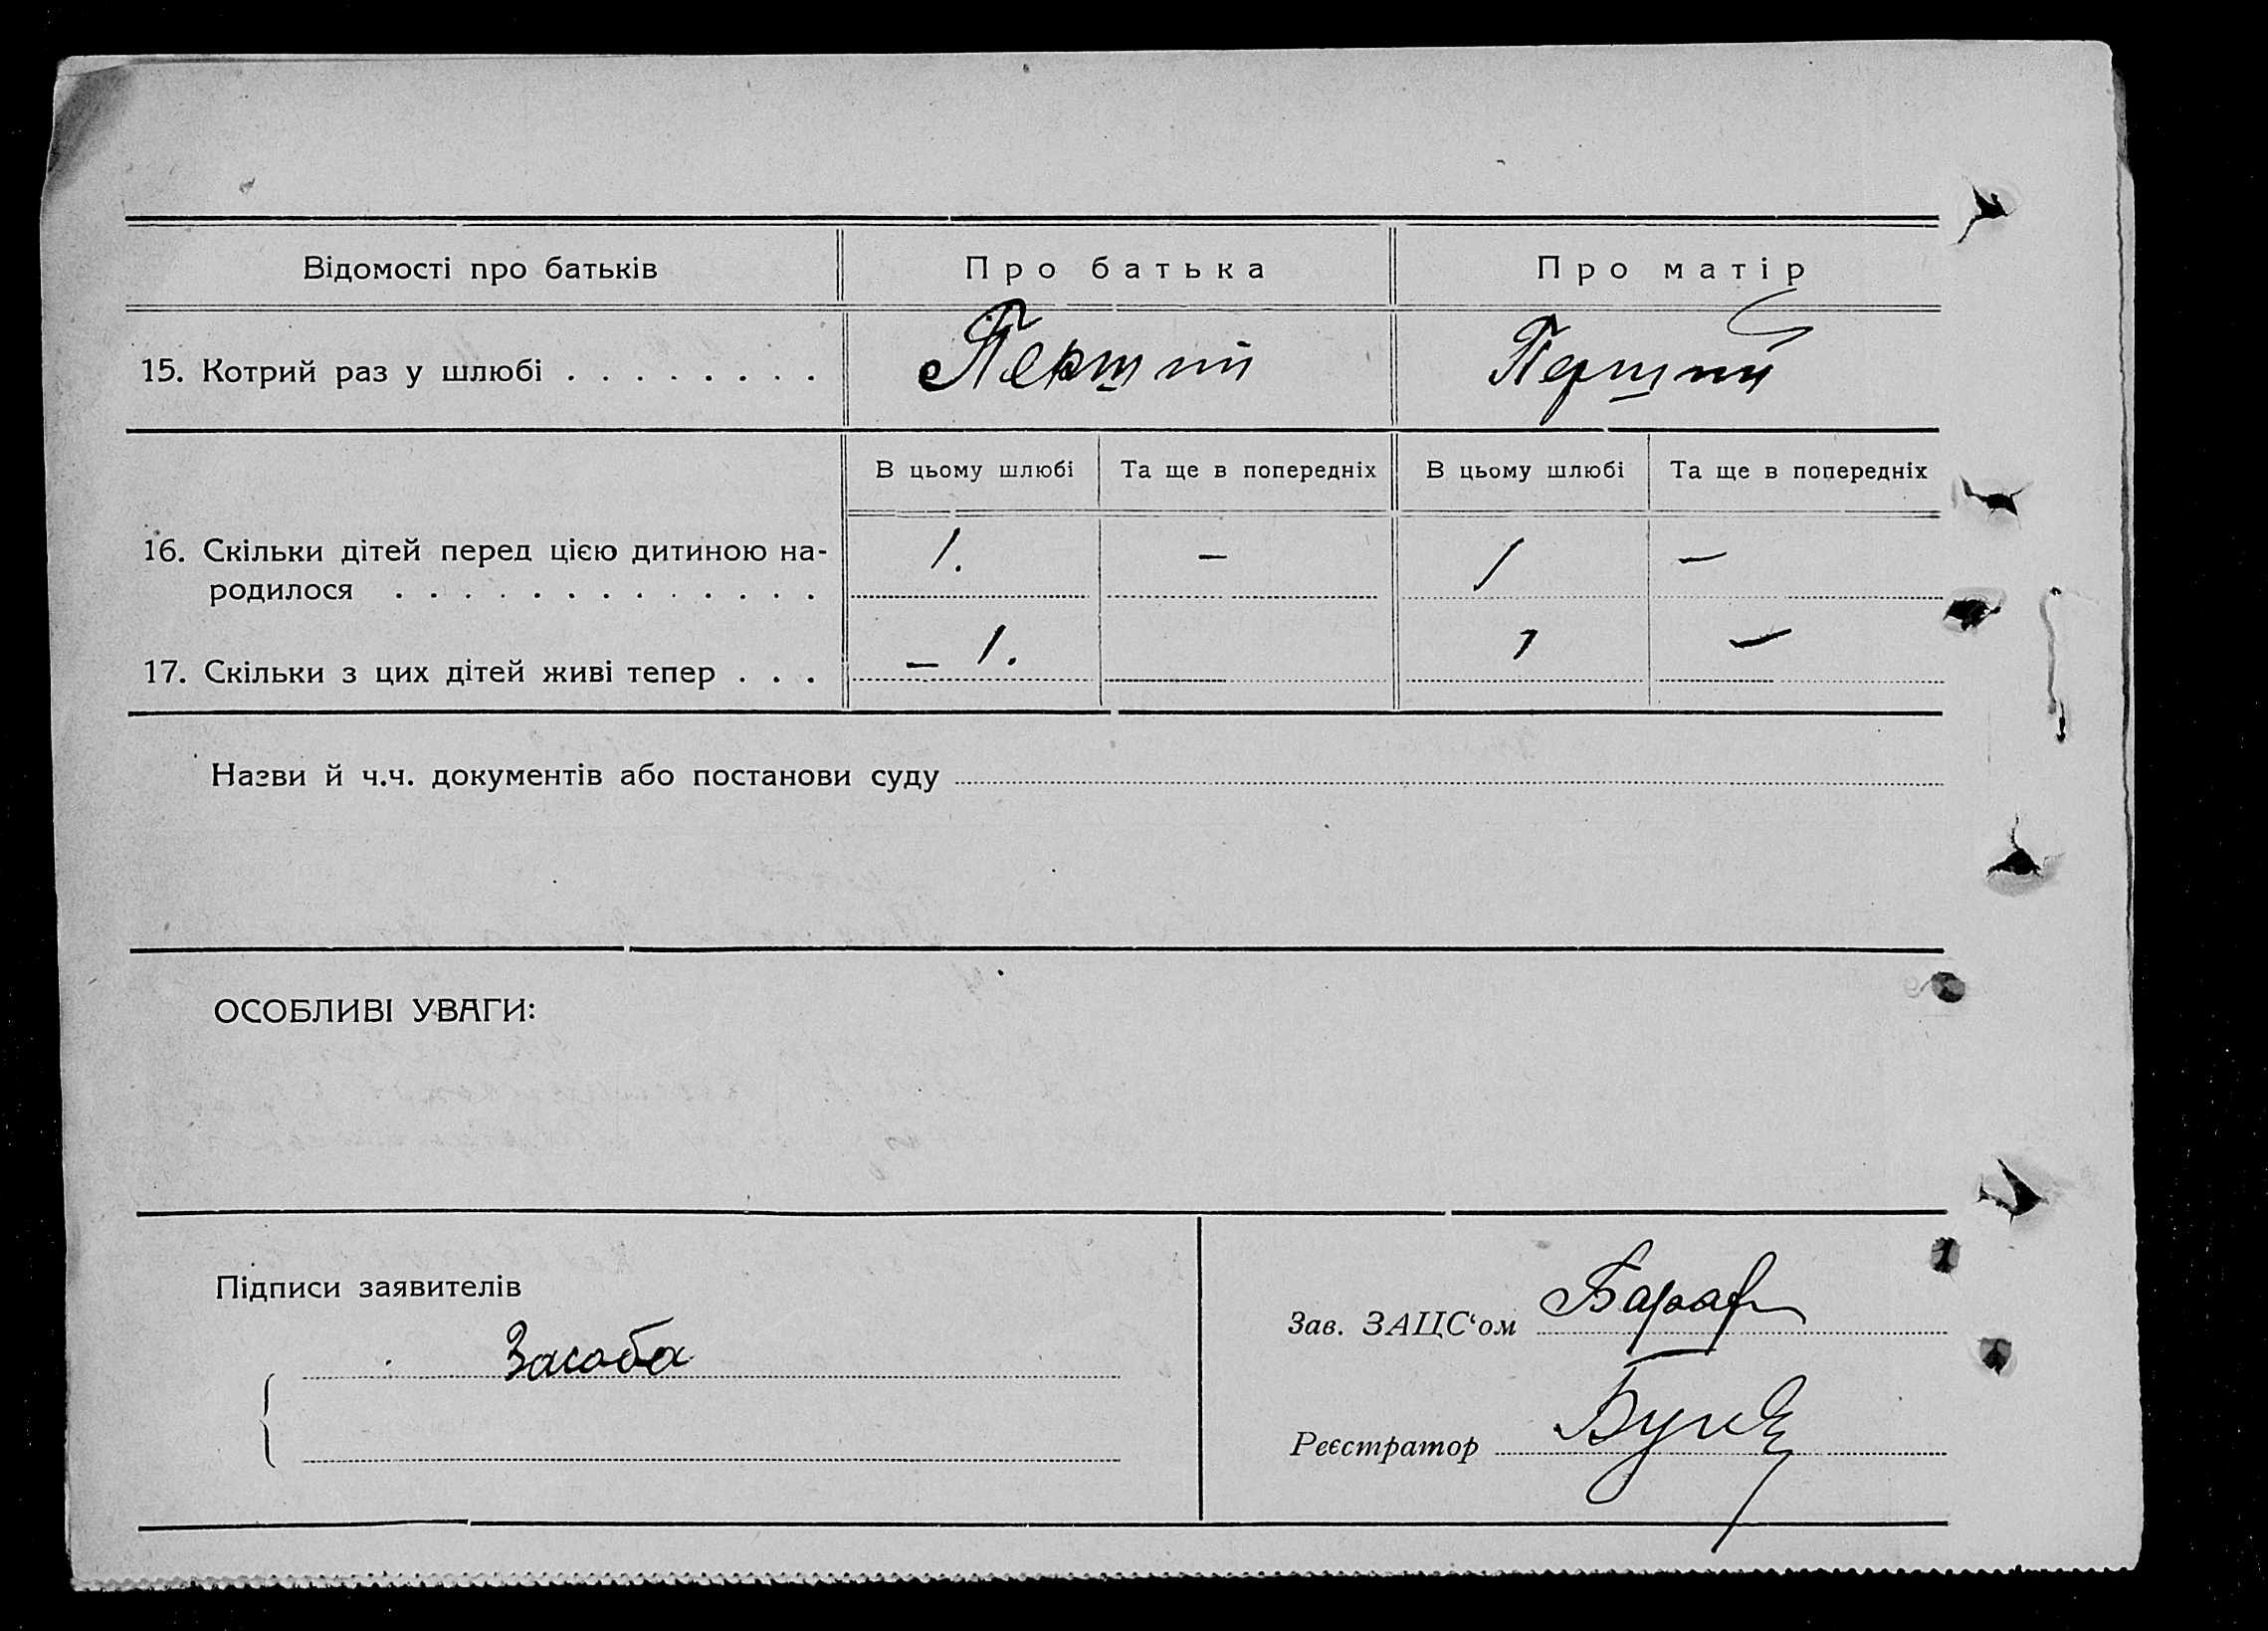 Відомості про батьків Про батька Про матір
15. Котрий раз у шлюбі . . . . . . . . Перший Перший
В цьому шлюбі Та ще в попередніх В цьому шлюбі Та ще в попередніх
16. Скільки дітей перед цією дитиною на-
родилося . . . . . . . . . . . . . 1. – 1 –
17. Скільки з цих дітей живі тепер . . . – 1. 1 –
Назви й ч.ч. документів або постанови суду
ОСОБЛИВІ УВАГИ:
Підписи заявителів
Засоба
Зав. ЗАЦС‘ом
Реєстратор